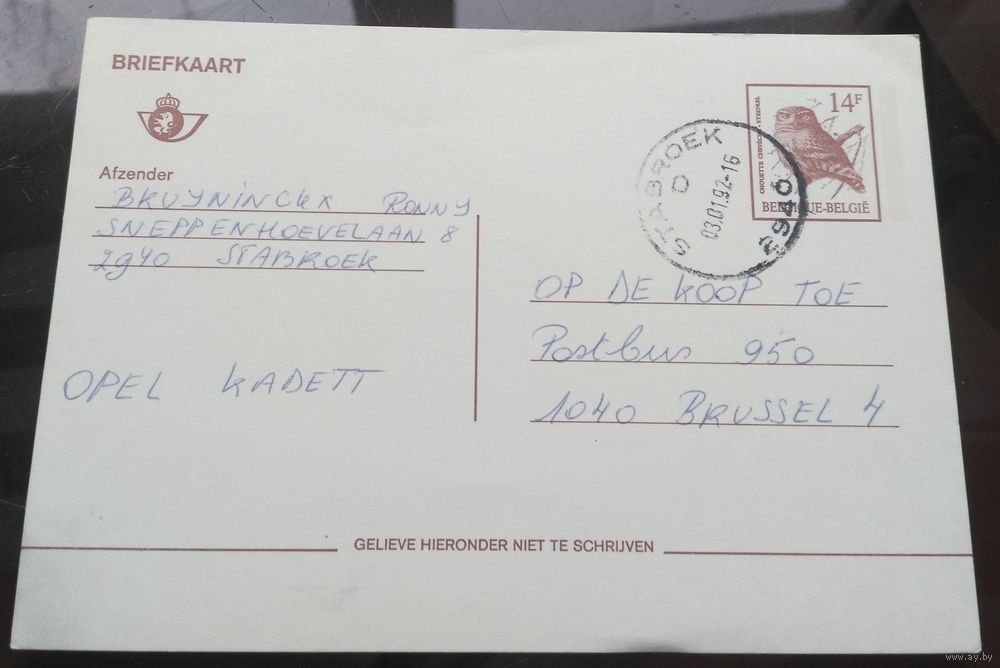 BRIEFKAART
Afzender
BRUYNINCKX RONNY
SNEPPENHOEVELAAN 8
2940 STABROEK
OPEL KADETT
14F
CHOUETTE CHEVÊCHE - STEENUIL
BELGIQUE-BELGIË
STABROEK
D
03.01.92-16
2940
OP DE KOOP TOE
Postbus 950
1040 BRUSSEL 4
GELIEVE HIERONDER NIET TE SCHRIJVEN
www.ay.by